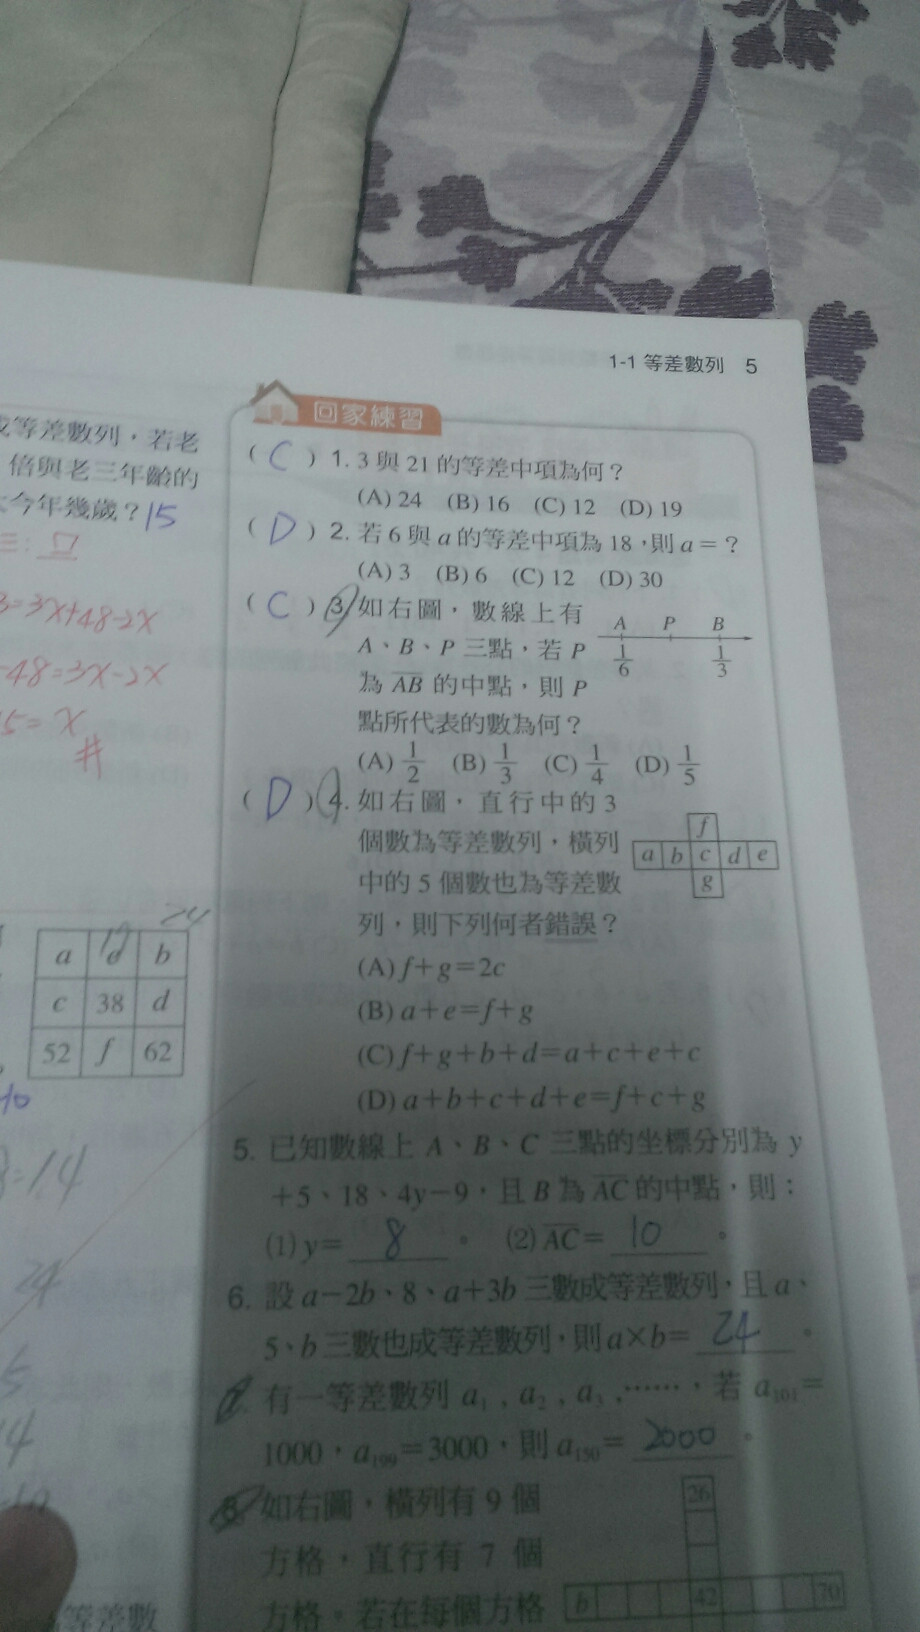 1-1 等差數列 5
回家練習
( C ) 1. 3 與 21 的等差中項為何？
(A) 24 (B) 16 (C) 12 (D) 19
( D ) 2. 若 6 與 a 的等差中項為 18，則 a＝？
(A) 3 (B) 6 (C) 12 (D) 30
( C ) 3. 如右圖，數線上有
A、B、P 三點，若 P
為 AB 的中點，則 P
點所代表的數為何？
A P B
1/6 1/3
(A) 1/2 (B) 1/3 (C) 1/4 (D) 1/5
( D ) 4. 如右圖，直行中的 3
個數為等差數列，橫列
中的 5 個數也為等差數
列，則下列何者錯誤？
f
a b c d e
g
(A) f＋g＝2c
(B) a＋e＝f＋g
(C) f＋g＋b＋d＝a＋c＋e＋c
(D) a＋b＋c＋d＋e＝f＋c＋g
5. 已知數線上 A、B、C 三點的坐標分別為 y
＋5、18、4y－9，且 B 為 AC 的中點，則：
(1) y＝ 8 。 (2) AC＝ 10 。
6. 設 a－2b、8、a＋3b 三數成等差數列，且 a、
5、b 三數也成等差數列，則 a×b＝ 24 。
7. 有一等差數列 a₁, a₂, a₃,……，若 a₁₀₁＝
1000，a₁₉₉＝3000，則 a₁₅₀＝ 2000 。
8. 如右圖，橫列有 9 個
方格，直行有 7 個
方格。若在每個方格
26
b 42 70
成等差數列，若老
倍與老三年齡的
今年幾歲？15
3=3x+48-2x
-48=3x-2x
5=x
#
24
a e b
c 38 d
52 f 62
10
=14
24
5
等差數